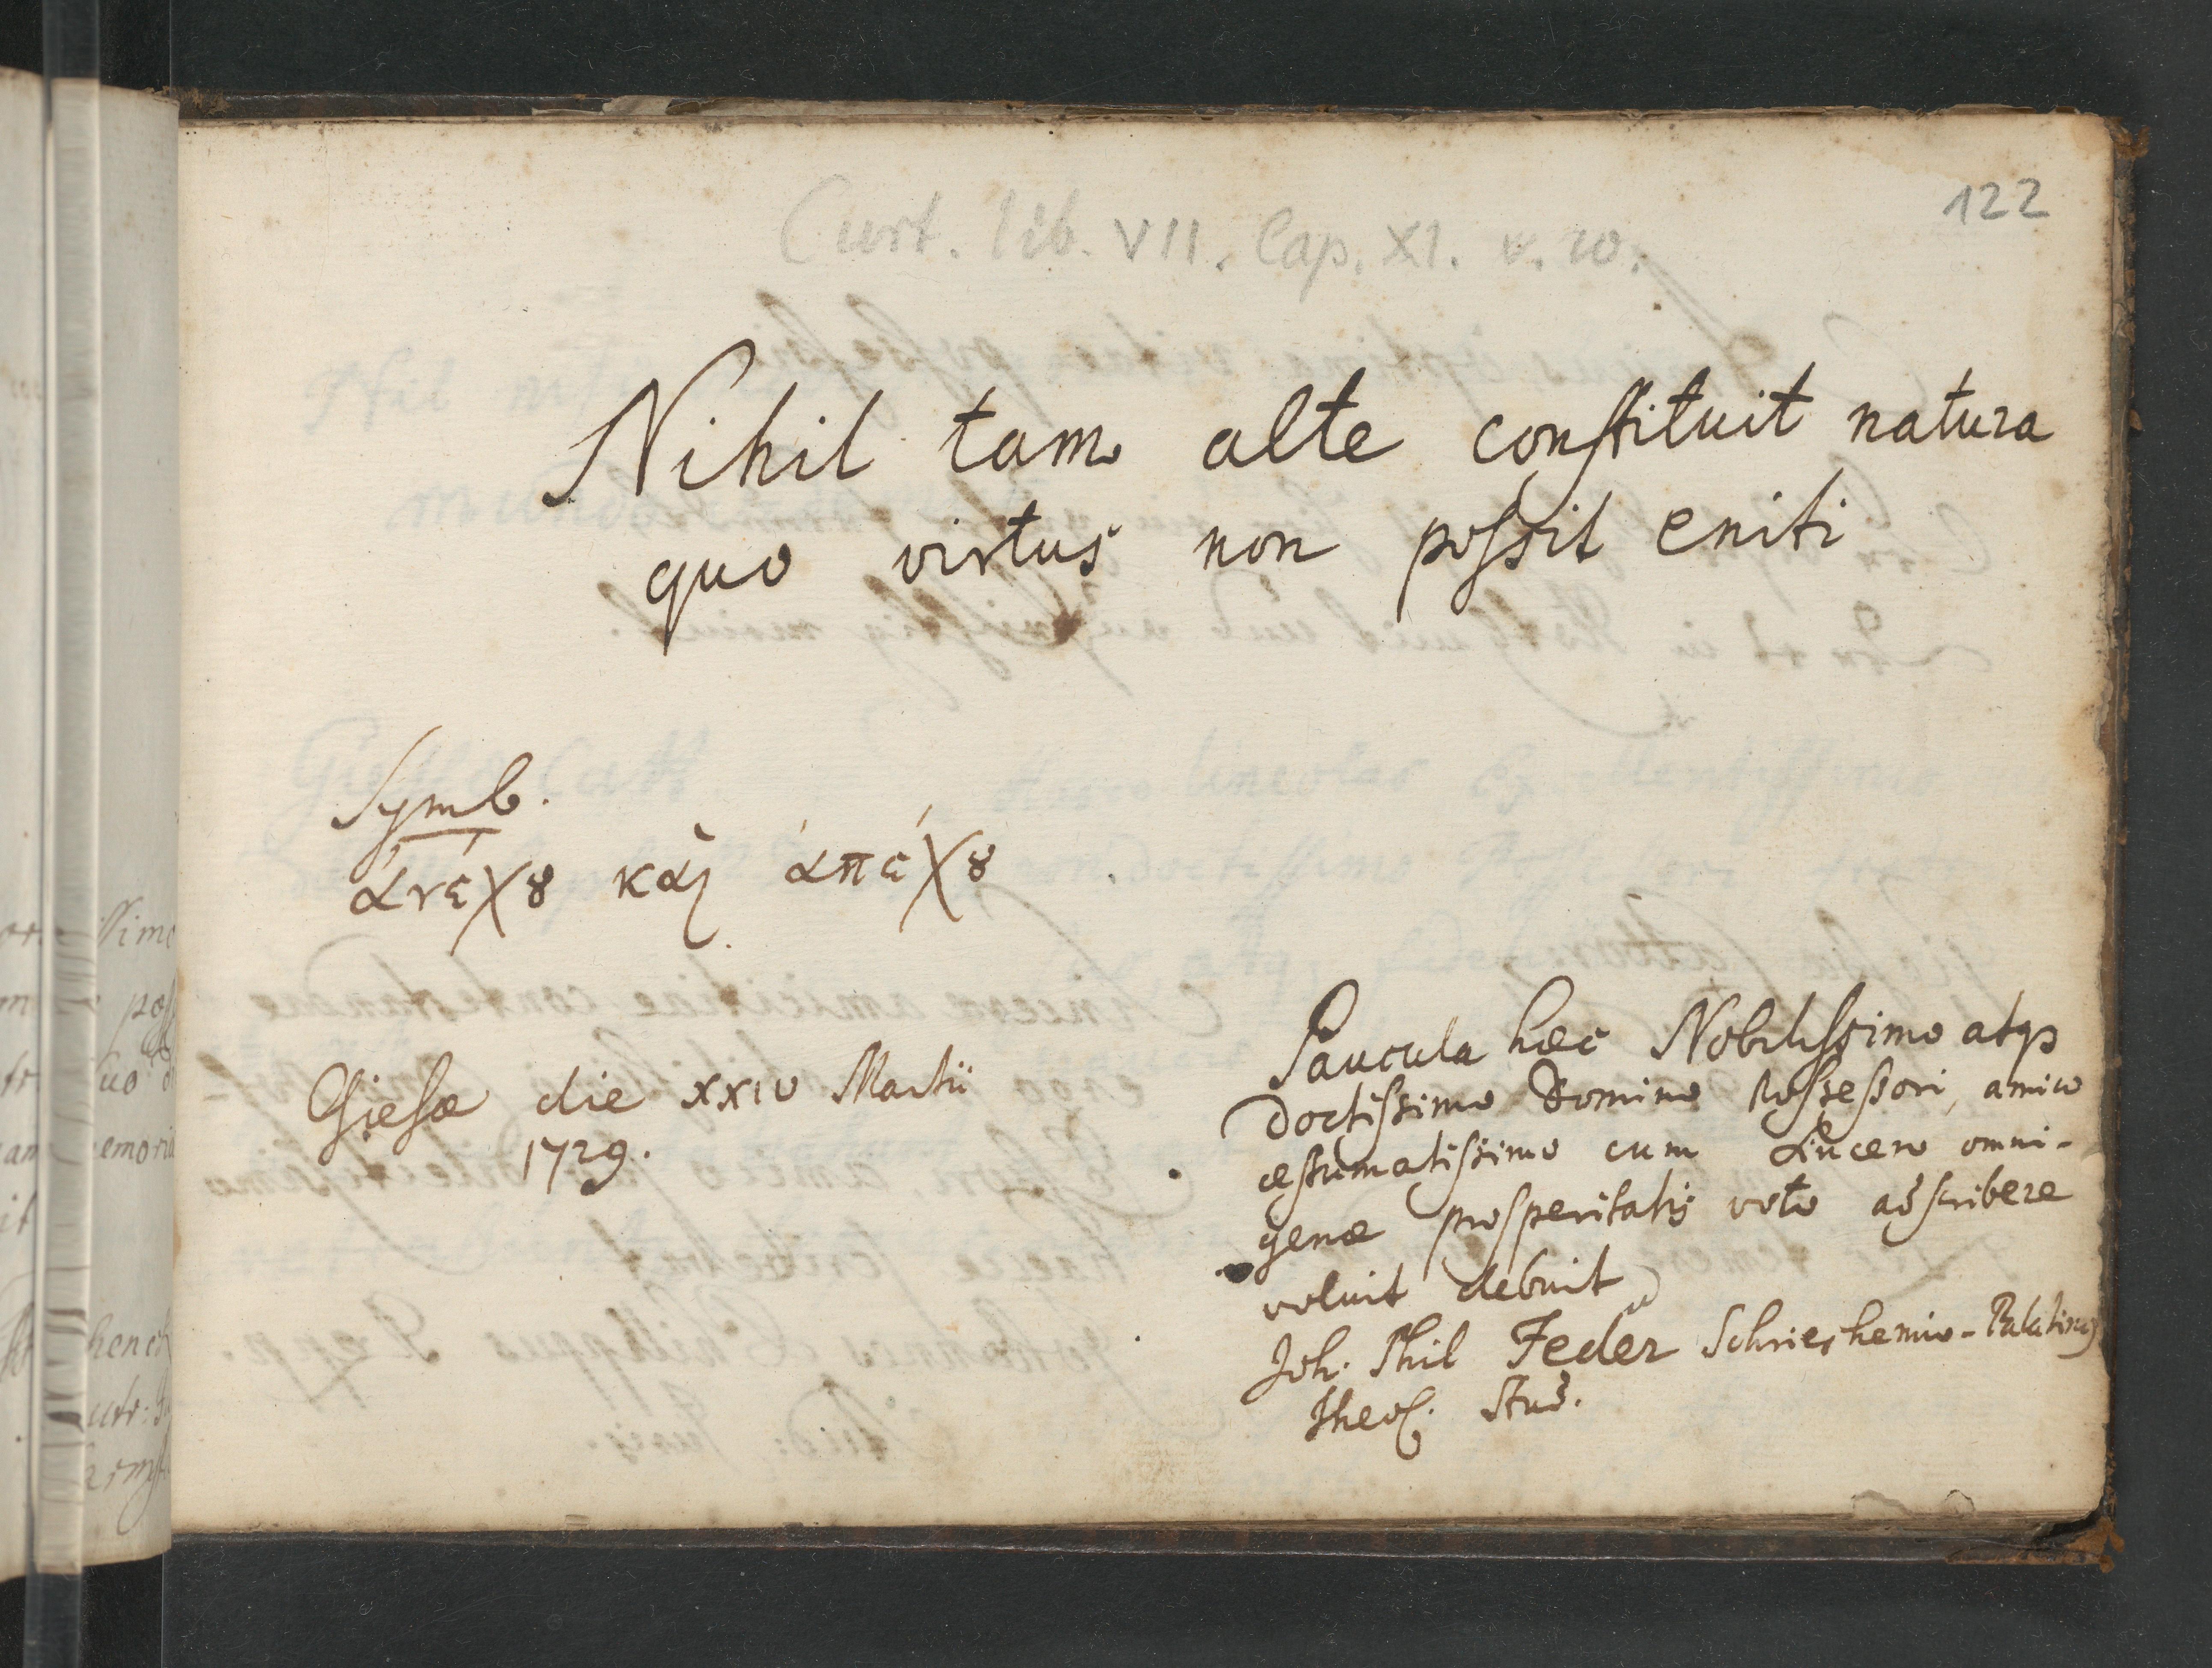 122
Curt. lib. VII. Cap. XI. v. 10.
Nihil tam alte constituit natura
quo virtus non possit eniti
Symb.
ἀνέχȣ καὶ ἀπέχȣ
Giesæ die XXIV Martii
1729.
Paucula hæc Nobilissimo atqꝫ
Doctissimo Domino Possessori, amico
æstumatissimo cum sincero omni-
genæ prosperitatis voto adscribere
voluit debuit
Joh. Phil Feder Schrieshemio-Palatinus
Theol. Stud.